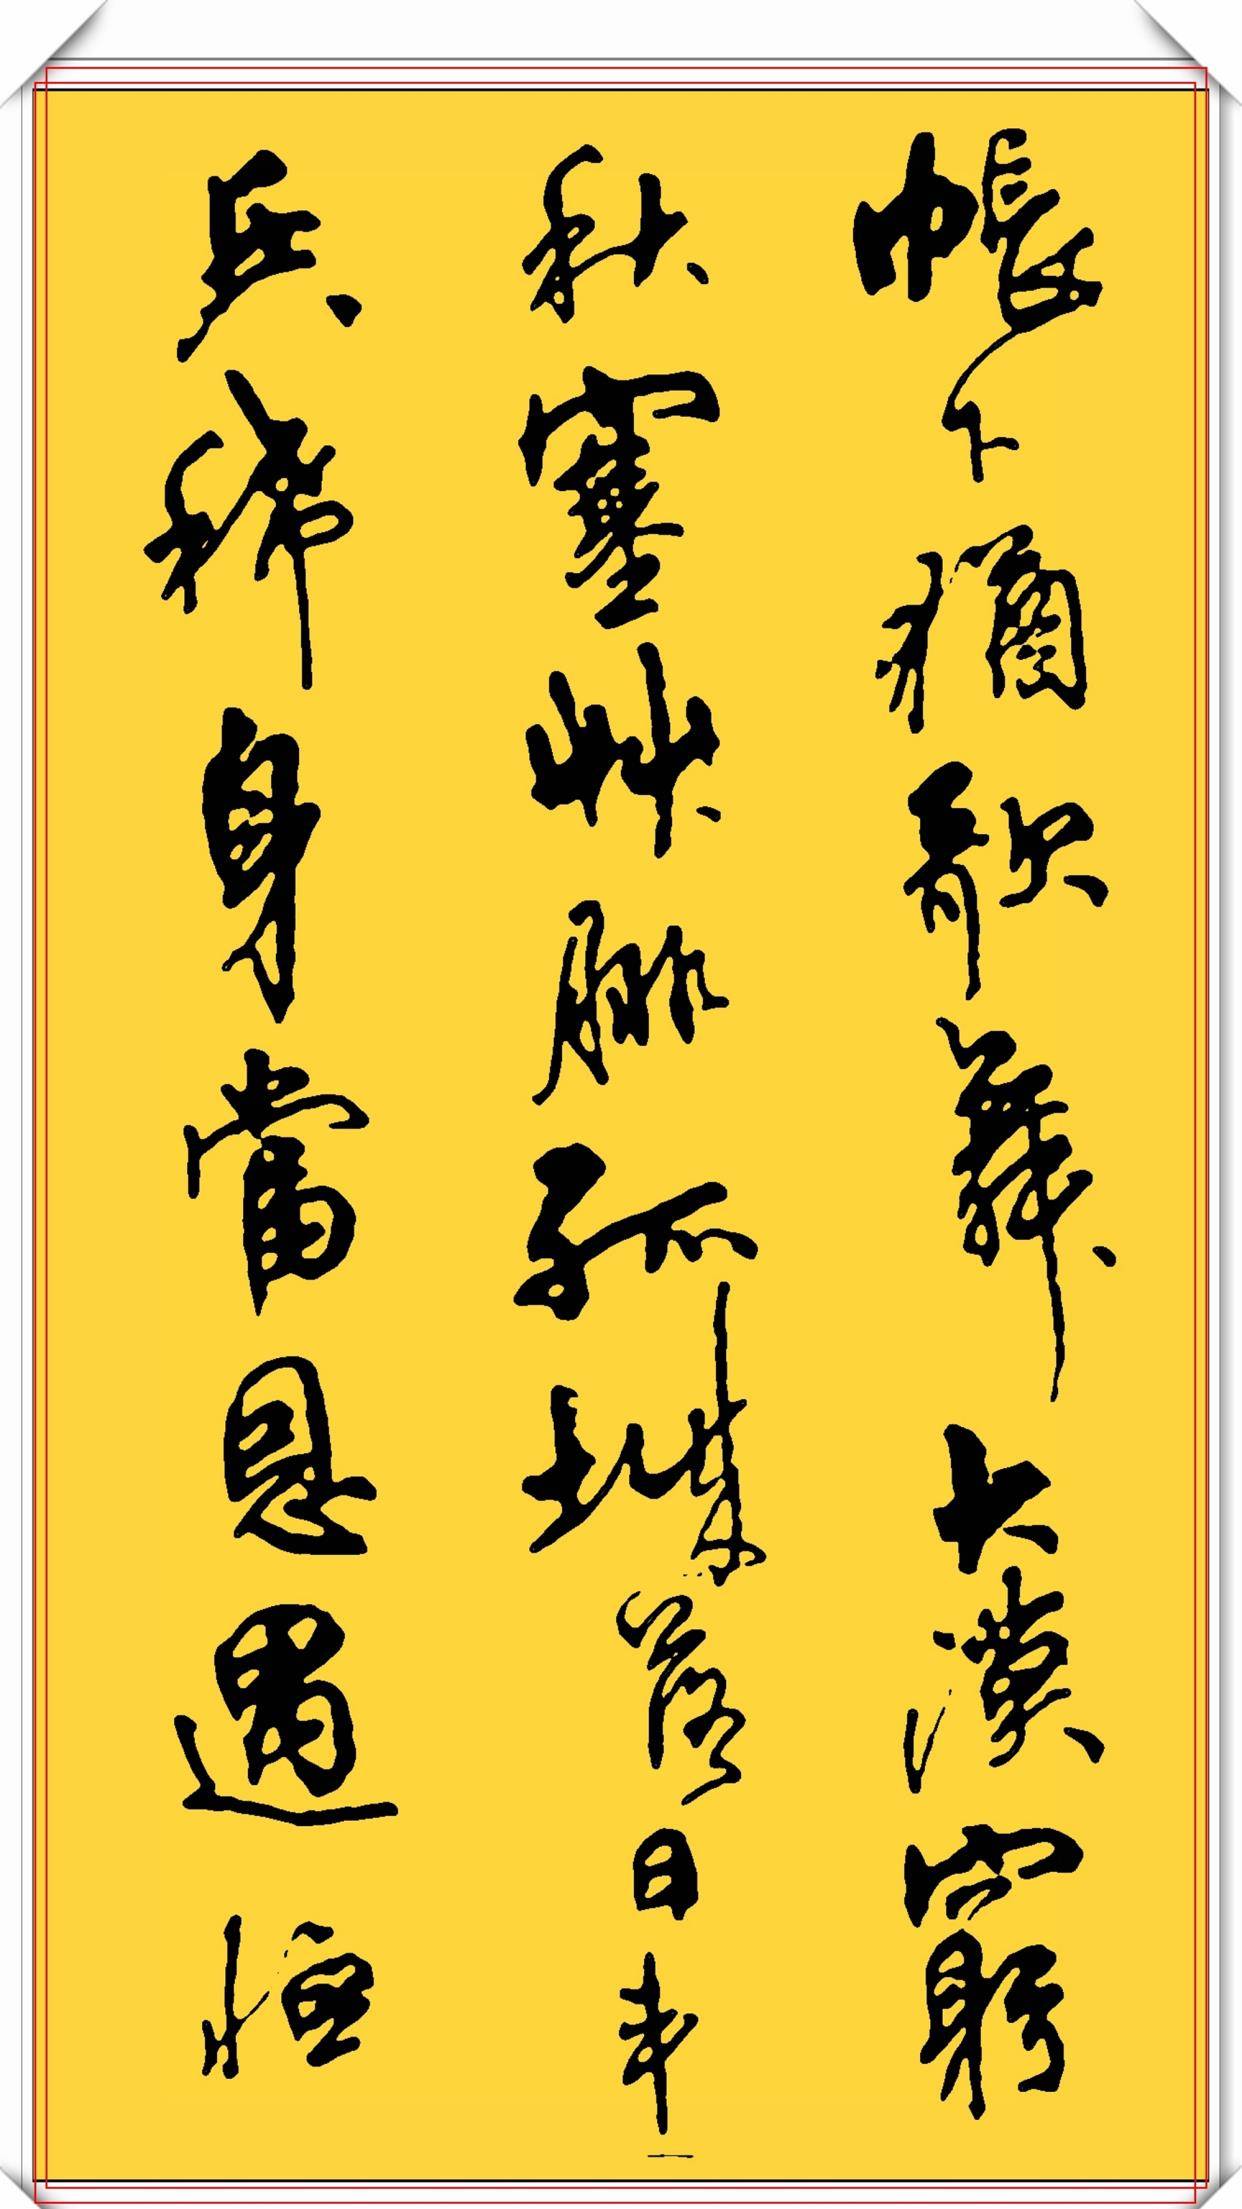 帳下猶歌舞大漠窮
秋塞草腓孤城落日鬥
兵稀身當恩遇恒